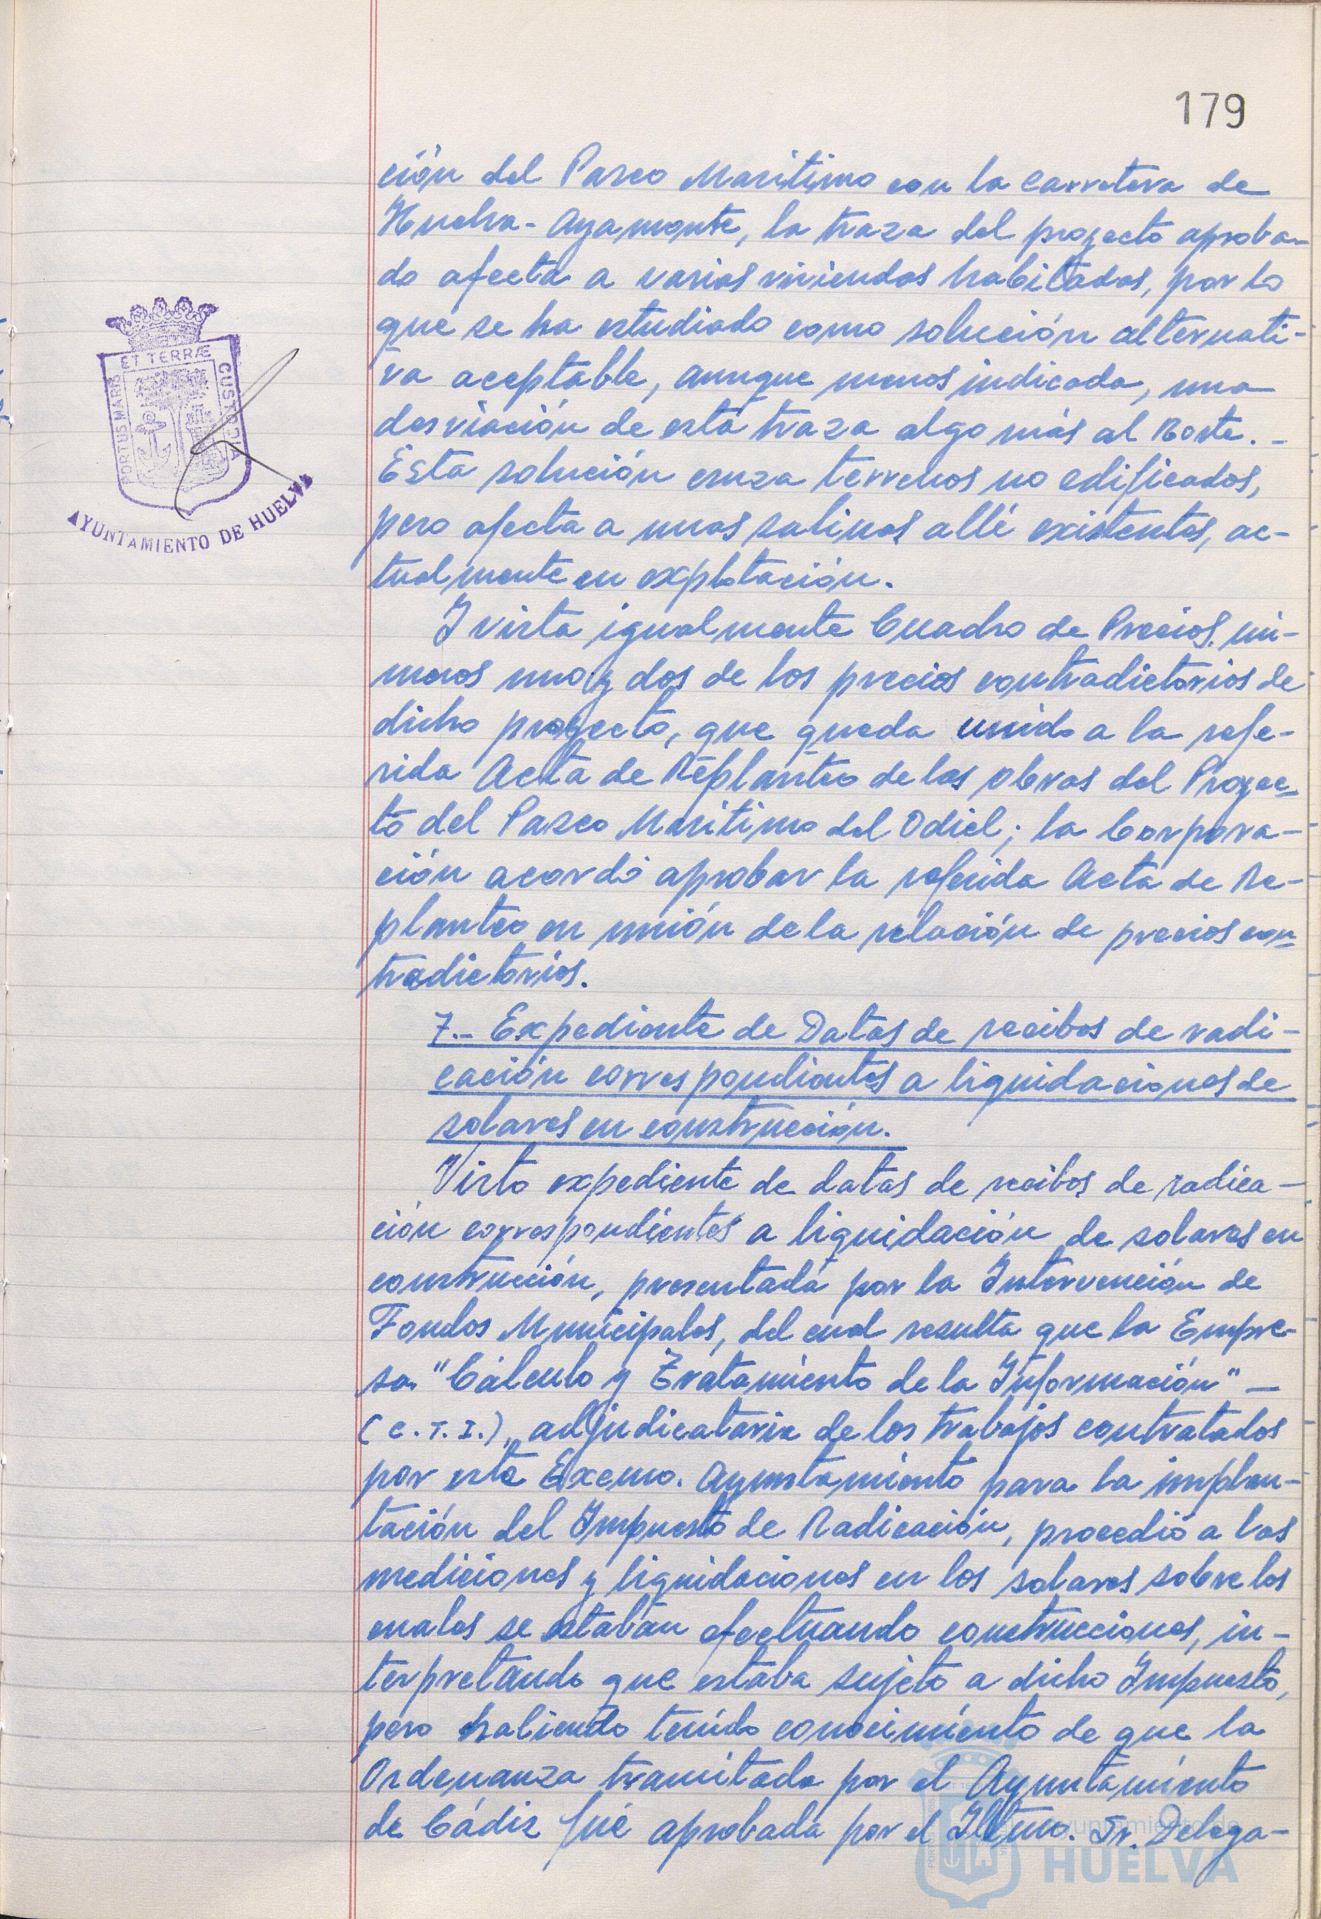 179
ción del Paseo Marítimo con la carretera de
Huelva-Ayamonte, la traza del proyecto aproba-
do afecta a varias viviendas habitadas, por lo
que se ha estudiado como solución alternati-
va aceptable, aunque menos indicada, una
desviación de esta traza algo más al Norte.-
Esta solución cruza terrenos no edificados,
pero afecta a unas salinas allí existentes, ac-
tualmente en explotación.
Y vista igualmente Cuadro de Precios, nú-
meros uno y dos de los precios contradictorios de
dicho proyecto, que queda unido a la refe-
rida Acta de Replanteo de las obras del Proyec-
to del Paseo Marítimo del Odiel; la Corpora-
ción acordó aprobar la referida Acta de Re-
planteo en unión de la relación de precios con-
tradictorios.
7.- Expediente de Datas de recibos de radi-
cación correspondientes a liquidaciones de
solares en construcción.
Visto expediente de datas de recibos de radica-
ción correspondientes a liquidación de solares en
construcción, presentada por la Intervención de
Fondos Municipales, del cual resulta que la Empre-
sa "Cálculo y Tratamiento de la Información" -
(C.T.I.), adjudicataria de los trabajos contratados
por este Excmo. Ayuntamiento para la implan-
tación del Impuesto de Radicación, procedió a las
mediciones y liquidaciones en los solares sobre los
cuales se estaban efectuando construcciones, in-
terpretando que estaba sujeto a dicho Impuesto,
pero habiendo tenido conocimiento de que la
Ordenanza tramitada por el Ayuntamiento
de Cádiz fué aprobada por el Iltmo. Sr. Delega-
PORTUS MARIS ET TERRÆ CUSTODIA
AYUNTAMIENTO DE HUELVA
Ayuntamiento de
HUELVA